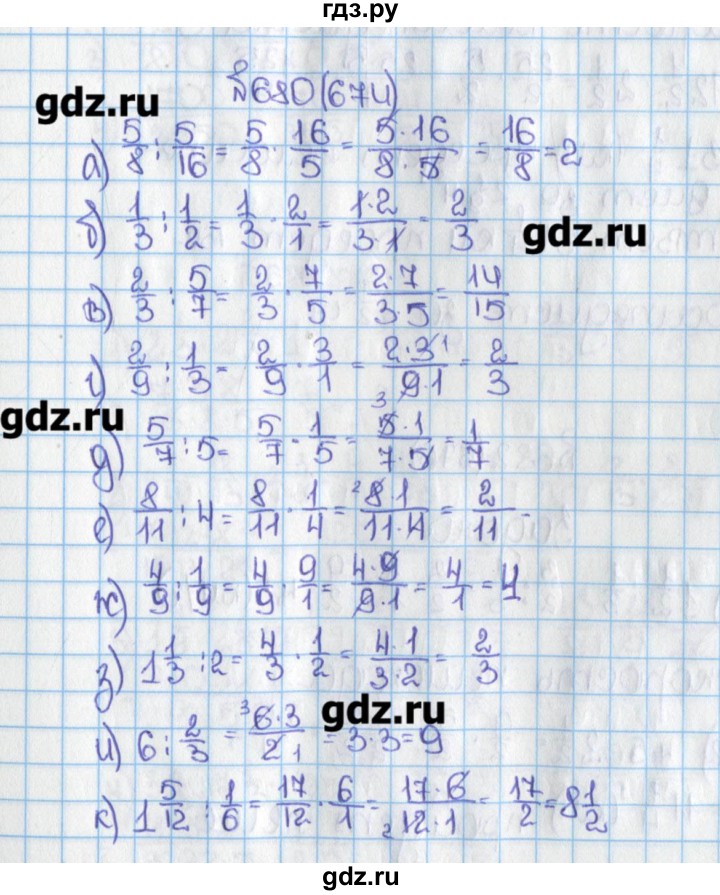 гдз.ру
№680(674)
gdz.ru
а) 5/8 : 5/16 = 5/8 · 16/5 = 5·16/8·5 = 16/8 = 2
б) 1/3 : 1/2 = 1/3 · 2/1 = 1·2/3·1 = 2/3
gdz.ru
в) 2/3 : 5/7 = 2/3 · 7/5 = 2·7/3·5 = 14/15
г) 2/9 : 1/3 = 2/9 · 3/1 = 2·3 1/3 9·1 = 2/3
gdz.ru
д) 5/7 : 5 = 5/7 · 1/5 = 5·1/7·5 = 1/7
е) 8/11 : 4 = 8/11 · 1/4 = 2 8·1/11·4 = 2/11
ж) 4/9 : 1/9 = 4/9 · 9/1 = 4·9/9·1 = 4/1 = 4
з) 1 1/3 : 2 = 4/3 · 1/2 = 4·1/3·2 = 2/3
gdz.ru
и) 6 : 2/3 = 3 6·3/2 1 = 3·3 = 9
к) 1 5/12 : 1/6 = 17/12 · 6/1 = 17·6/2 12·1 = 17/2 = 8 1/2
gdz.ru